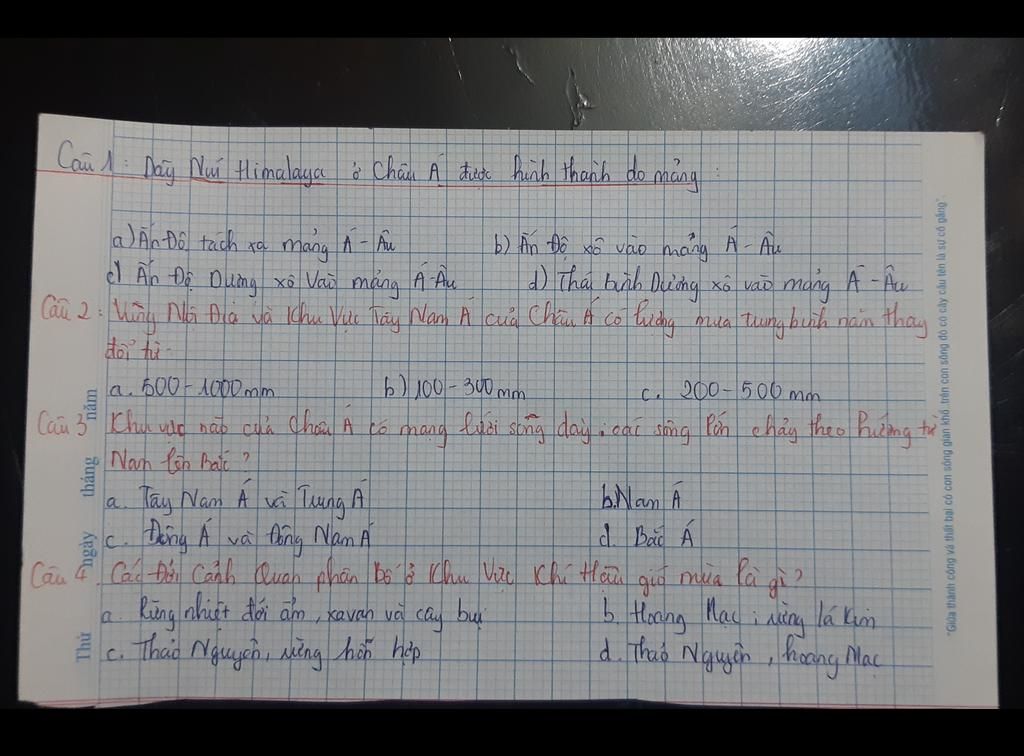 Câu 1: Dãy Núi Himalaya ở Châu Á được hình thành do mảng:
a) Ấn Độ tách xa mảng Á - Âu b) Ấn Độ xô vào mảng Á - Âu
c) Ấn Độ Dương xô vào mảng Á-Âu d) Thái bình Dương xô vào mảng Á - Âu
Câu 2: Vùng Nội Địa và Khu Vực Tây Nam Á của Châu Á có lượng mưa trung bình năm thay
đổi từ -
a. 500-1000mm b) 100-300mm c. 200-500 mm
Câu 3 Khu vực nào của Châu Á có mạng lưới sông dày, các sông lớn chảy theo hướng từ
Nam lên Bắc?
a. Tây Nam Á và Trung Á b. Nam Á
c. Đông Á và Đông Nam Á d. Bắc Á
Câu 4. Các Đới Cảnh Quan phân bố ở Khu Vực Khí Hậu gió mùa là gì?
a. Rừng nhiệt đới ẩm, xavan và cây bụi b. Hoang Mạc; rừng lá kim
c. Thảo Nguyên, rừng hỗn hợp d. Thảo Nguyên, hoang Mạc
Thứ ngày tháng năm
"Giữa thành công và thất bại có con sông gian khổ, trên con sông đó có cây cầu tên là sự cố gắng"